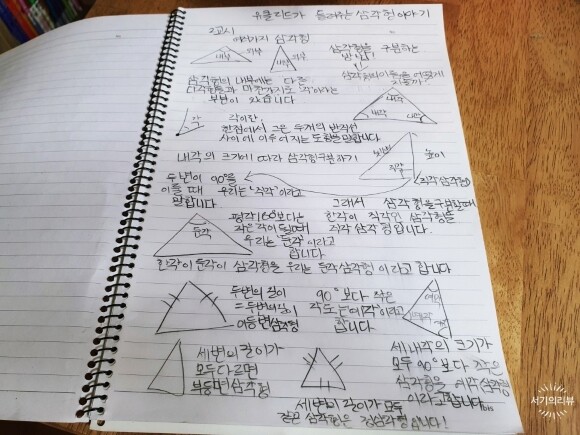 유클리드가 들려주는 삼각형 이야기
2교시
여러가지 삼각형
내부 외부
내부 외부
삼각형을 구분하는
방법!
삼각형의 내부에는 다른
다각형들과 마찬가지로 각이라는
부분이 있습니다
삼각형의 이름을 어떻게
지을까?
내각
내각 내각
각
각이란,
한점에서 그은 두개의 반직선
사이에 이루어지는 도형을 말합니다.
내각의 크기에 따라 삼각형 구분하기
빗변
직각
높이
(직각삼각형)
두변이 90°을
이룰 때 우리는 "직각"이라고
말합니다
그래서 삼각형을 구분할때
한각이 직각인 삼각형을
직각 삼각형입니다.
둔각
평각 160보다는
작은 각이 될때
우리는 "둔각"이라고
합니다
한각이 둔각이 삼각형을 우리는 둔각삼각형 이라고 합니다
두변의 길이
= 두변의 길이
이등변삼각형
90°보다 작은
각도는 예각"이라고
합니다.
예각
예각
예각
세변의 길이가
모두다르면
부등변삼각형
세내각의 크기가
모두 90°보다 작은
삼각형을 예각삼각형
이라고 합니다
세변의 길이가 모두
같은 삼각형은 정삼각형 입니다!
서기의리뷰